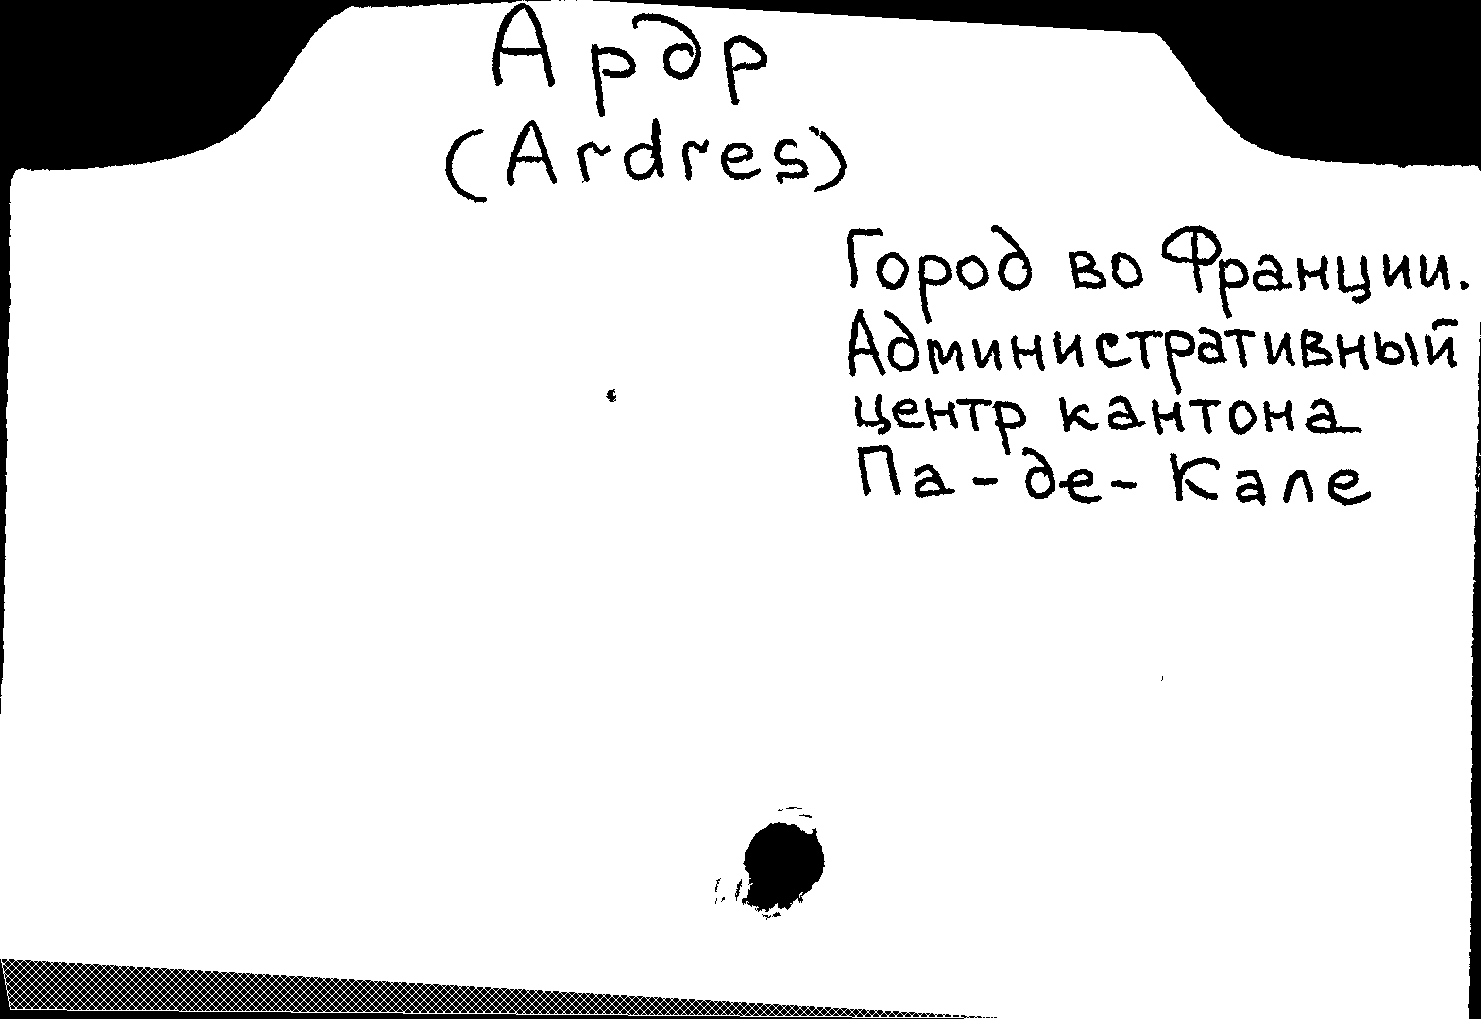 Ардр
(Ardres)
Город во Франции.
Административный
центр кантона
Па-де-Кале